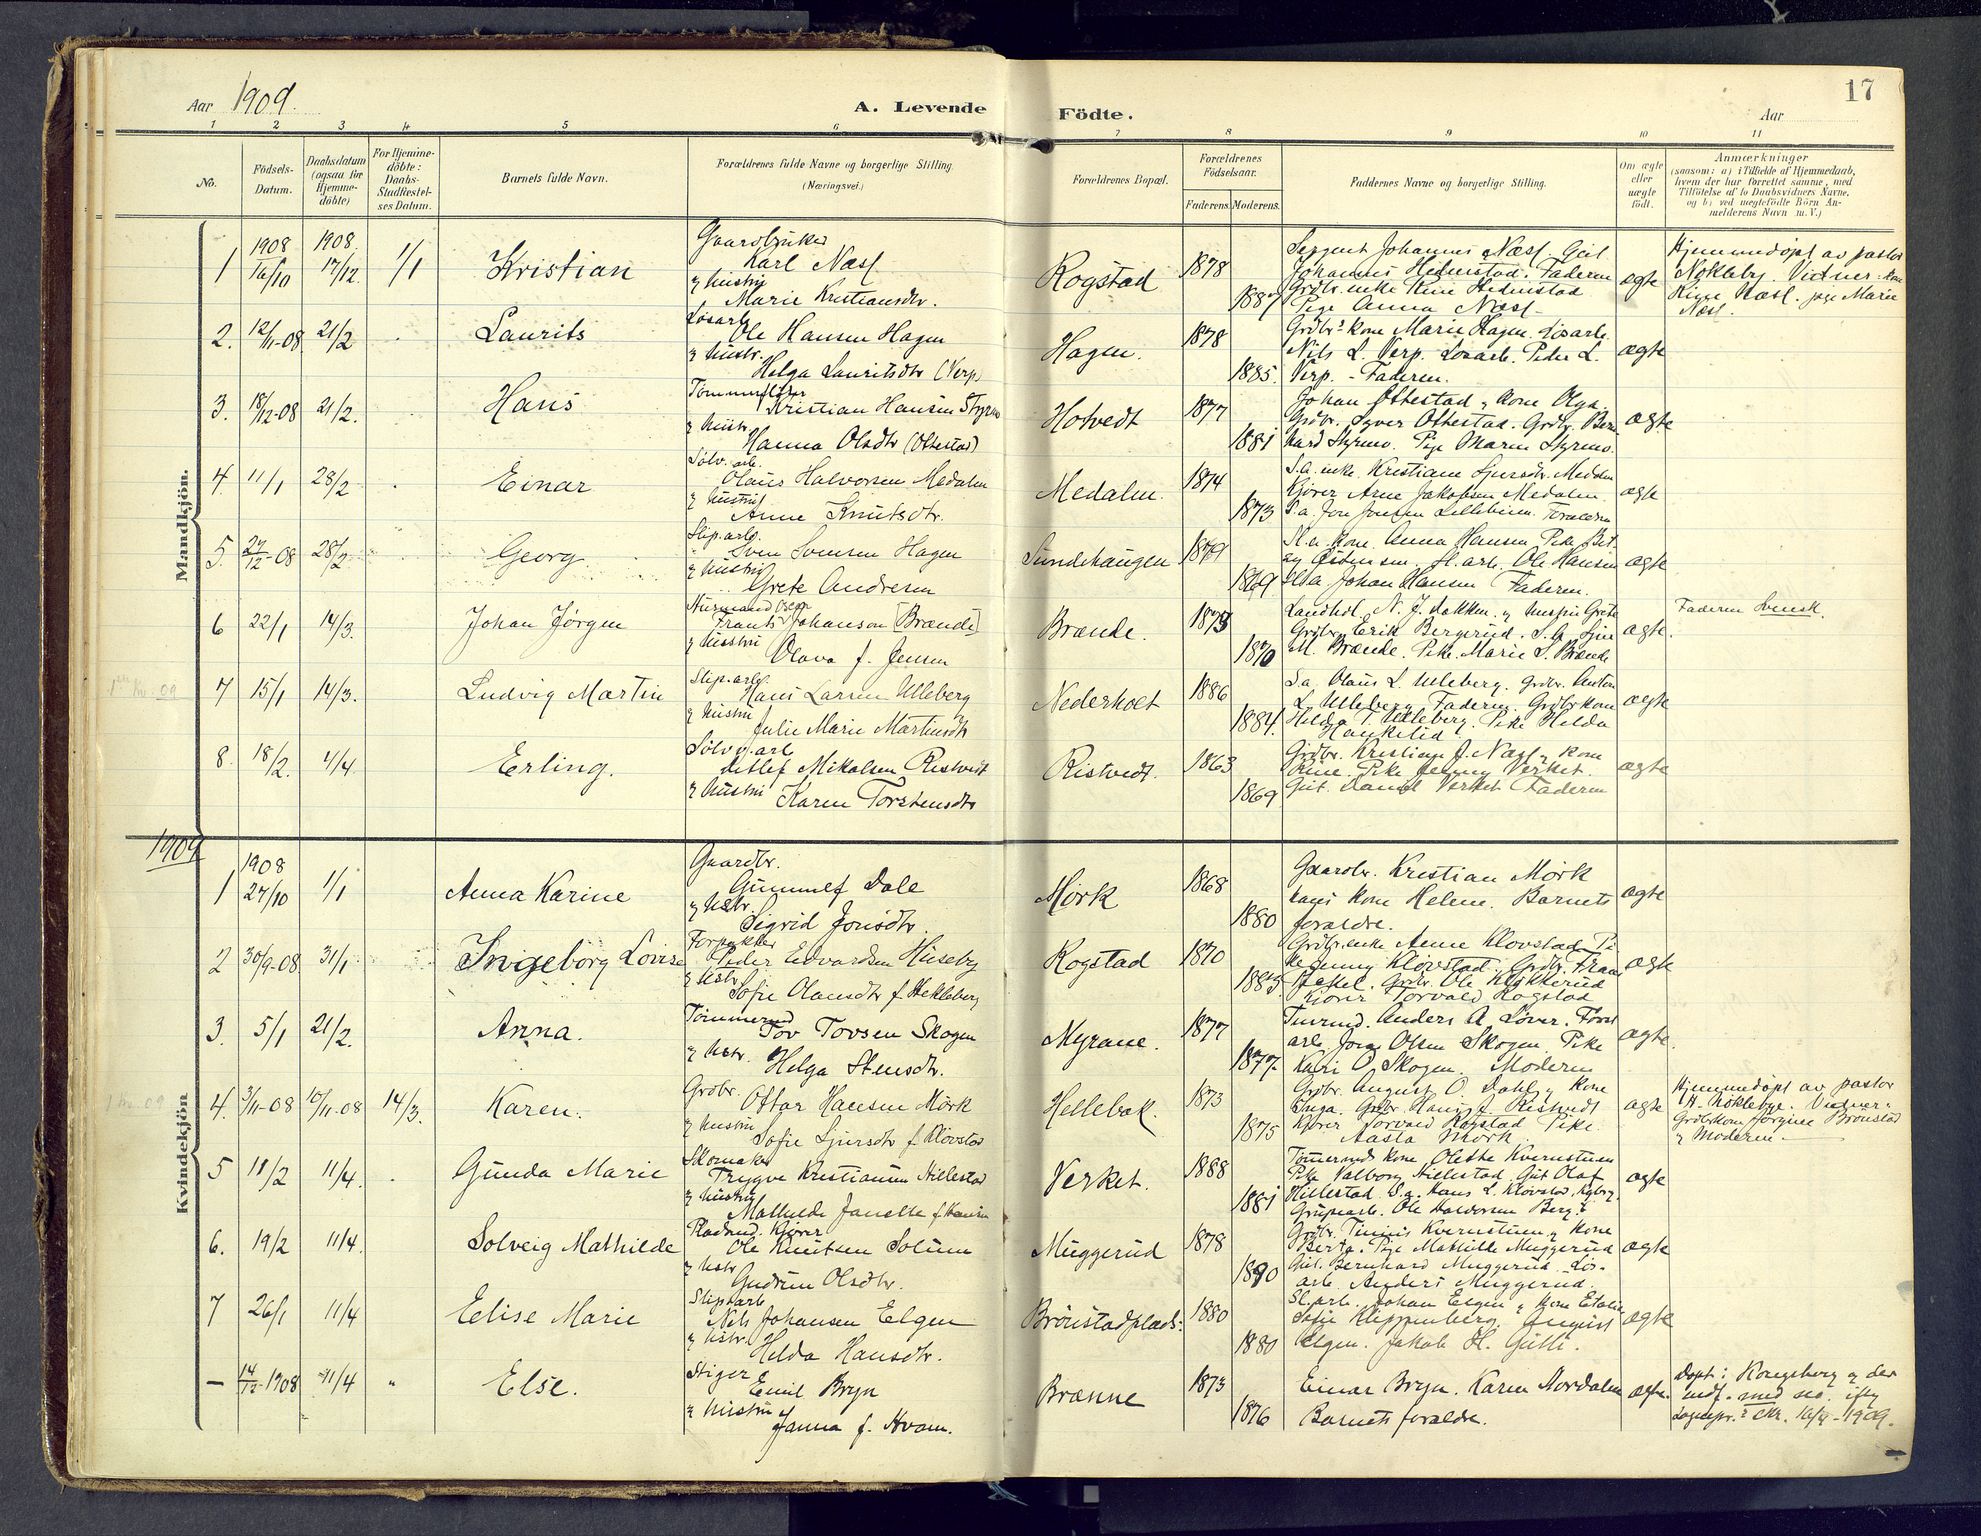 17
Aar 1909. A. Levende Födte. Aar
1 2 3 4 5 6 7 8 9 10 11
No.
Födsels-
Datum.
Daabsdatum
(ogsaa for
Hjemme-
döbte)
For Hjemme-
döbte:
Daabs-
Stadfæstel-
ses Datum.
Barnets fulde Navn.
Forældrenes fulde Navne og borgerlige Stilling.
(Næringsvei.)
Forældrenes Bopæl.
Forældrenes
Födselsaar.
Faderens. Moderens.
Faddernes Navne og borgerlige Stilling.
Om ægte
eller
uægte
födt.
Anmærkninger
(saasom: a) i Tilfælde af Hjemmedaab,
hvem der har forrettet samme, med
Tilföielse af to Daabsvidners Navne,
og b) ved uegtefödte Börn An-
melderens Navn m. V.)
Mandkjön.
1 1908 16/10 1908. 17/12. 1/1 Kristian
Gaardbruker
Karl Næss
& hustru
Marie Kristiansdtr.
Rogstad 1878 1887
Sergent Johannes Næss. Gut
Johannes Hedenstad. Faderen
Pige Anna Næss
ægte
Hjemmedøpt av pastor
Nøkleby. Vidner: kone
Næss. pige Marie
Næss.
2. 12/11-08 21/2 Laurits
Løsarb.
Ole Hansen Hagen
& hustr.
Helga Lauritsdtr (Verp)
Hagen. 1878 1885.
Grdbrs kone Marie Hagen. Løsarb.
Nils L. Verp. Løsarb. Peder L.
Verp. - Faderen.
ægte
3. 18/12-08 21/2. Hans
Tømmerfløter
Kristian Hansen Styrmo
& hustr.
Hanna Olsdtr (Ottestad)
Hotvedt 1877 1881
Johan Ottestad & kone Olga.
Grdbr. Syver Ottestad. Grdbr. Bern
hard Styrmo. Pige Maren Styrmo.
ægte
4. 11/1 28/2 Einar
Sølv. arb.
Olaus Halvorsen Medalen
& hustru
Anne Knutsdtr.
Medalen. 1874 1873
S.a. enke Kristiane Sjursdtr. Medalen
Kjører Arne Jakobsen Medalen.
S.a. Jon Jonsen Lillebuen. Foraldren
ægte
5. 27/12-08 28/2 Georg
Slip. arb.
Sven Svensen Hagen
& hustru
Grete Andresen
Sundehaugen 1879 1869
Sl.a. kone Anna Hansen Pike Bet
zy Østensen. Sl.arb. Ole Hansen
Johan Hansen Faderen.
ægte
6 22/1 14/3. Johan Jørgen
Husmand Oscar
Frants Johansen [Brænde]
& hustru
Olava f. Jensen
Brænde. 1873 1870
Landhdl. N. J. Bakken & hustru Grete
Grdbr. Erik Bergerud. S.a. Sjur
M. Brænde. Pike Marie S. Brænde
ægte
Faderen Svensk.
7 15/1 14/3. Ludvig Martin
Slip.arb.
Hans Larsen Ulleberg
& hustru
Julie Marie Martinsdtr
Nederholt 1886 1884.
S.a. Olaus L. Ulleberg. Grdbr. Anton
L. Ulleberg Faderen. Grdbrkone
Helda T. Ulleberg. Pike Helda
Haukelid.
ægte
8. 18/2. 4/4 Erling.
Sølvv.arb
Detlef Mikalsen Ristvedt
& hustru
Karen Torstensdtr
Ristvedt. 1863 1869
Grdbr. Kristian J. Næss & kone
Rine. Pike Jenny Verket.
Gut. Daniel Verket Faderen
ægte
1909
Kvindekjön
1 1908 27/10 1/1 Anna Karine
Gaardbr.
Gunnulf Dale
& hstr.
Sigrid Jonsdtr.
Mørk 1868 1880
Gaardbr. Kristian Mørk
hans kone Helene. Barnets
foraldre.
ægte
2 30/9-08 31/1 Ingeborg Lovise
Forpakter
Peder Edvardsen Huseby
& hstr.
Sofie Olausdtr f. Hekleberg
Rogstad 1870 1883
Grdbr.enke Anne Kløvstad Pi
ke Jenny Kløvstad. Grdbr. Frans
Stessel. Grdbr. Ole Klykkerud
Kjører Torvald Rogstad
ægte
3. 5/1 21/2. Anna.
Tømmermd
Tov Tovsen Skogen
& hstr.
Helga Stensdtr.
Myrane. 1877 1877.
Tmrmd. Anders A. Løver. Forst
arb. Jørg. Olsen Skogen. Pike
Kari O Skogen. Moderen
ægte.
4. 3/11-08 10/11-08 14/3. Karen.
Grdbr.
Ottar Hansen Mørk
& hustru
Sofie Sjursdtr f. Kløvstad
Hellebæk. 1873 1875
Grdbr. August O Dahl & kone
Inga. Grdbr. Hans J. Ristvedt
Kjører Torvald Rogstad Pike
Aasta Mørk.
ægte
Hjemmedøpt av pastor
H. Nøkleby. Vidner:
Grdbrkone Jørgine Brønstad
& Moderen
5 18/2 11/4. Gunda Marie
Skomaker
Trygve Kristiansen Hillestad
& hustru
Mathilde Janette f. Hansen
Verket. 1888 1881
Tømmermds kone Olette Kvernstuen
Pike Valborg Hillestad. Gut Olaf
Hillestad. S.a. Hans L. Kløvstad
Grubearb. Ole Halvorsen Berg.
ægte
6. 19/2 11/4. Solveig Mathilde
Kjører
Ole Knutsen Solum
& hstr
Gudrun Olsdtr.
Muggerud 1878 1890
Grdbr. Kvernstuen & kone
Berta. Pige Mathilde Muggerud
Gut. Bernhard Muggerud. Løs-
arb Anders Muggerud.
ægte
7 26/1 11/4 Edise Marie
Slip.arb
Nils Johansen Elgen
& hstr.
Helda Hansdtr.
Brønstadplads: 1880 1880
Sl.arb. Johan Elgen & kone
Sofie Klippenberg. August
Elgen. Jakob H. Gulli.
ægte
- 14/12-1908 11/4 " Else.
Stiger
Emil Bryn
& hustru
Janna f. Hvam.
Brænne 1873 1876
Einar Bryn. Karen Nordalen
Barnets foraldre.
ægte.
Døpt i Kongsberg & der
indf. med no. iflg
1909.